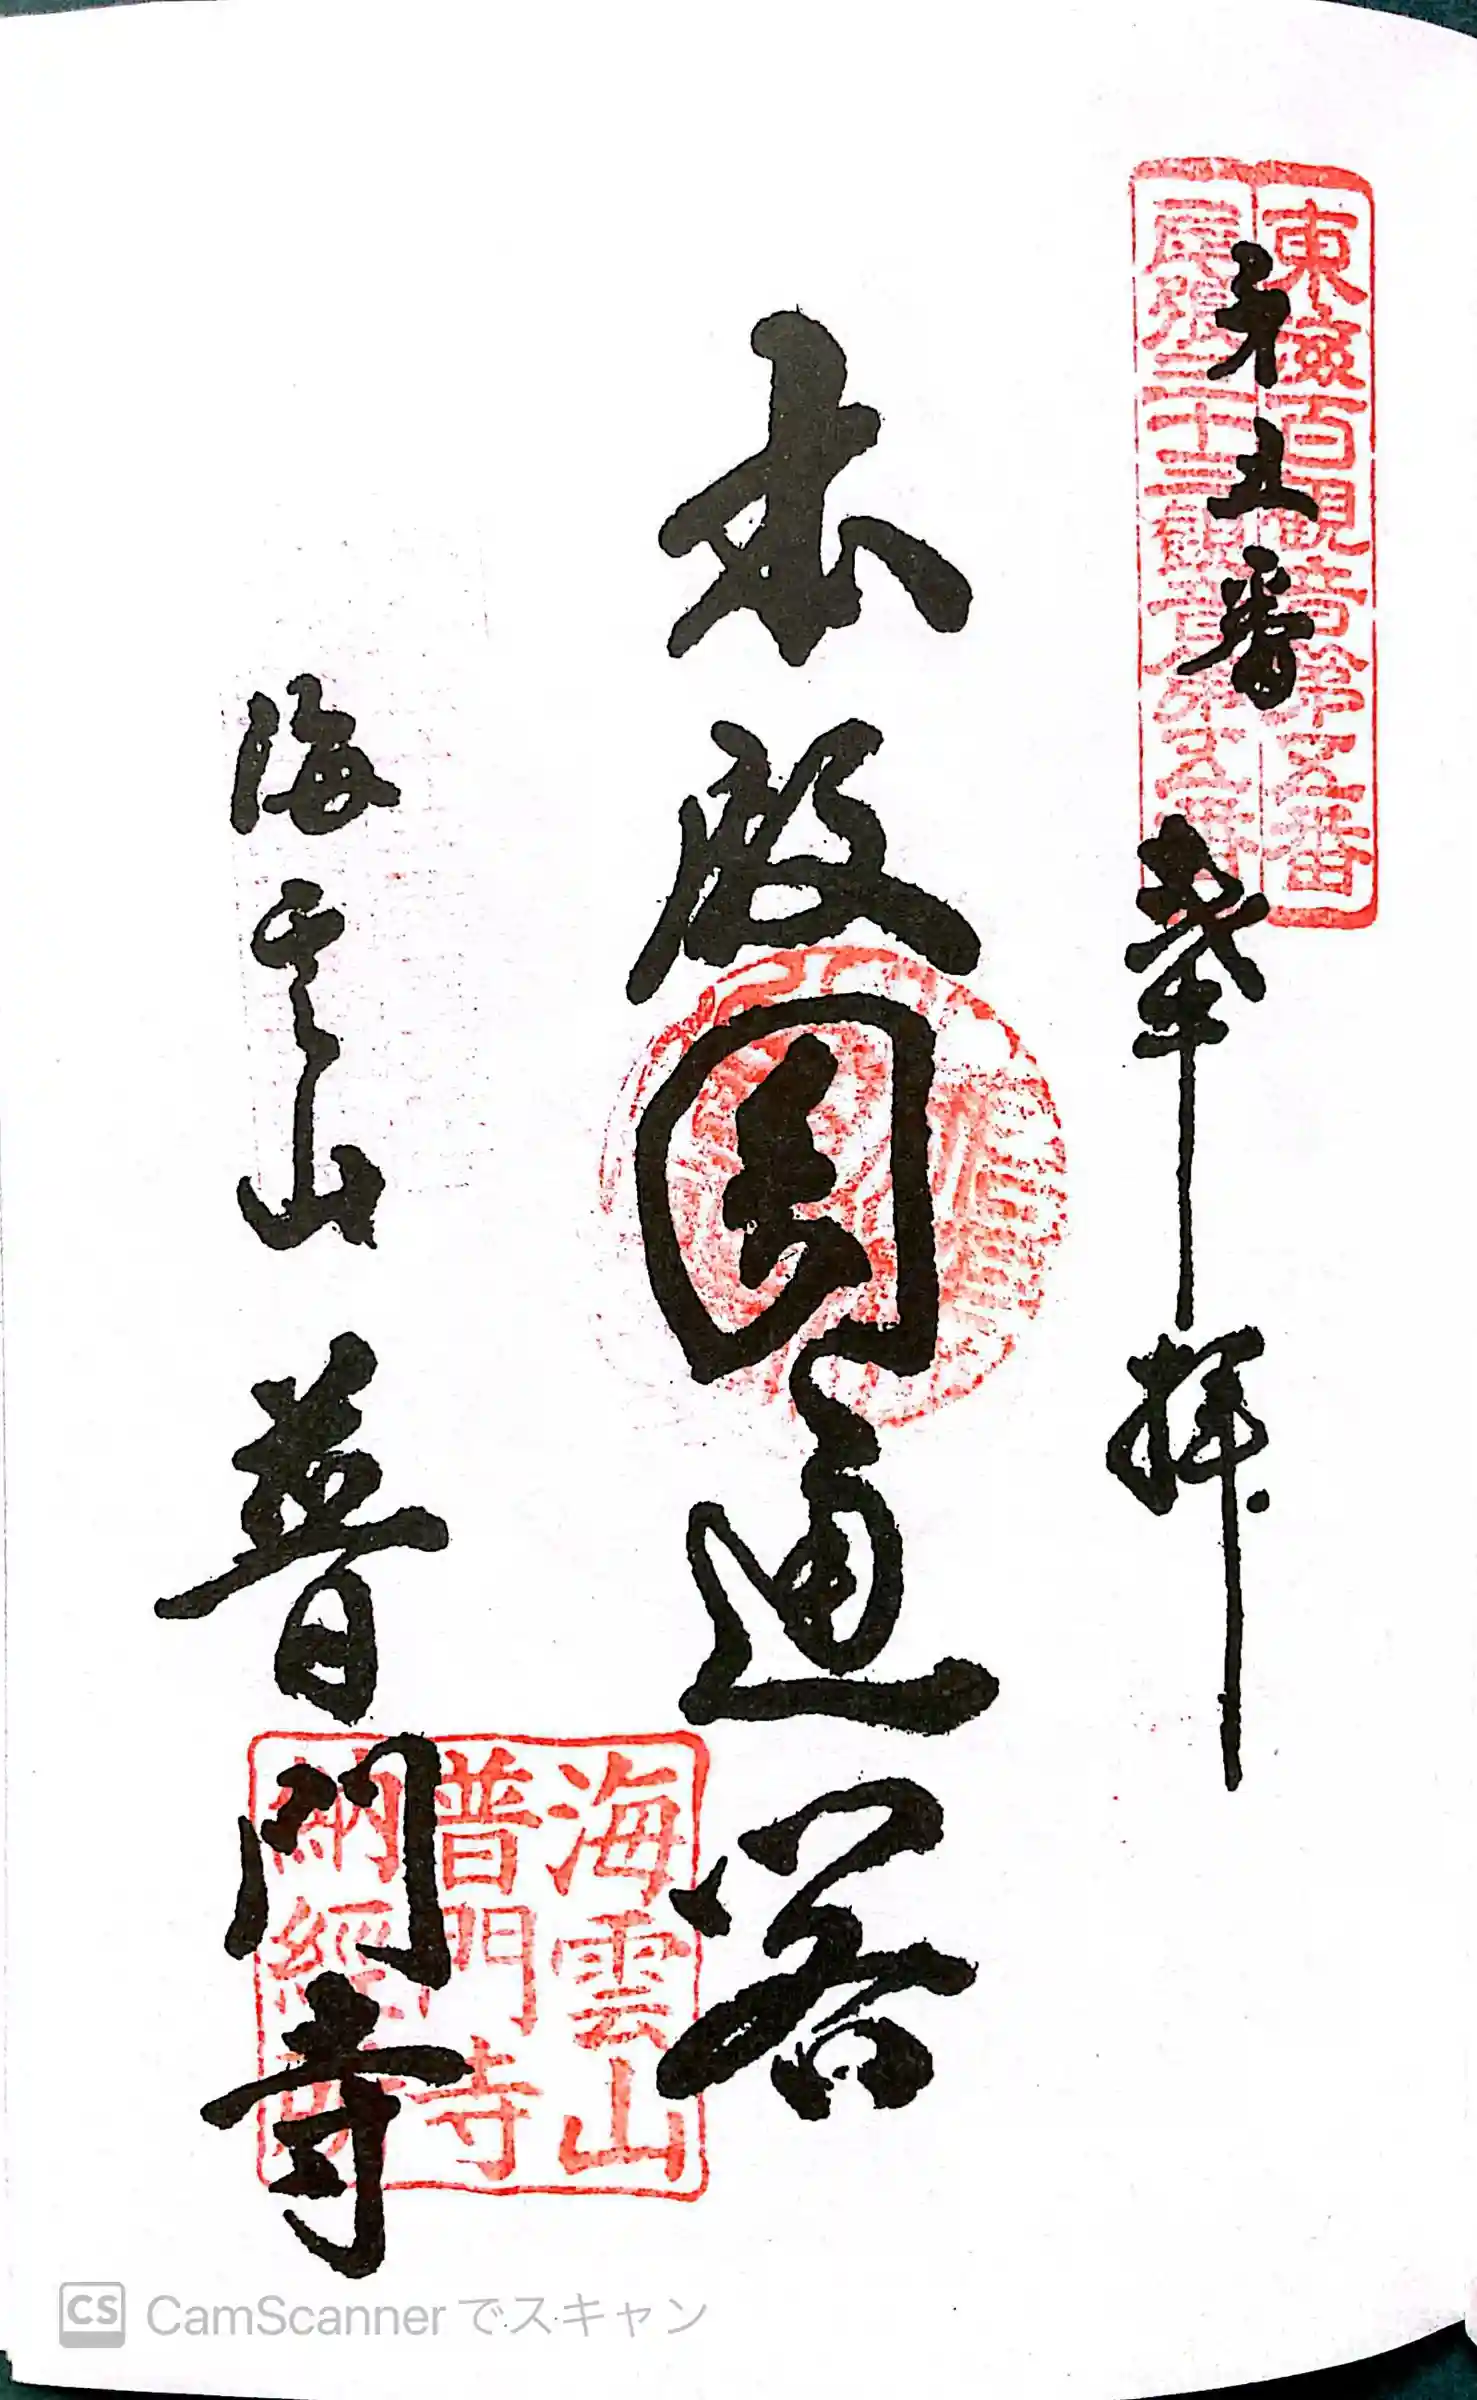 東海百観音第五番
尾張三十三観音第五番
第五番 奉拝
本殿圓通閣
海雲山 普門寺
海雲山
普門寺
納經所
CS CamScannerでスキャン